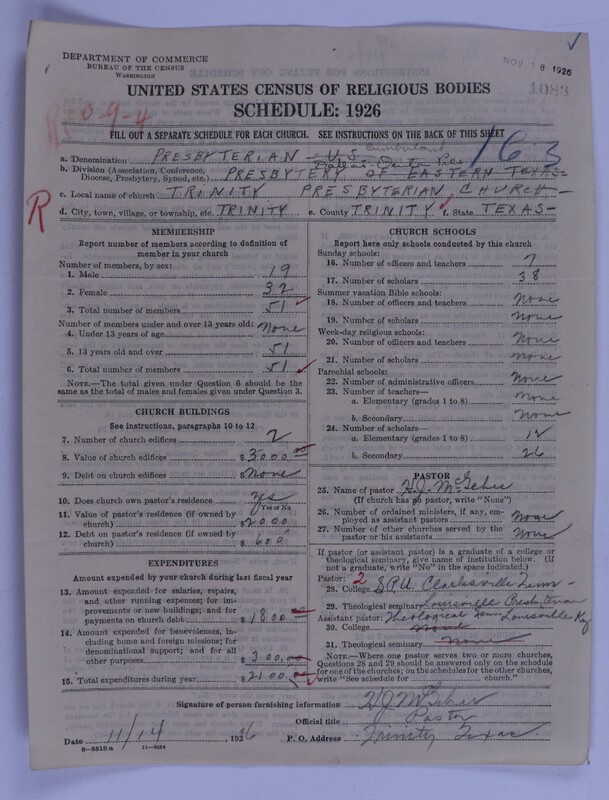 DEPARTMENT OF COMMERCE
BUREAU OF THE CENSUS
WASHINGTON
NOV 18 1926
1083
UNITED STATES CENSUS OF RELIGIOUS BODIES
SCHEDULE: 1926
R 0-9-4
FILL OUT A SEPARATE SCHEDULE FOR EACH CHURCH. SEE INSTRUCTIONS ON THE BACK OF THIS SHEET
163
Cumberland
a. Denomination PRESBYTERIAN - U.S.
Dallas-Denton Pres
b. Division (Association, Conference, Diocese, Presbytery, Synod, etc.) PRESBYTERY OF EASTERN TEXAS-
c. Local name of church TRINITY PRESBYTERIAN CHURCH-
R
d. City, town, village, or township, etc. TRINITY e. County TRINITY f. State TEXAS-
MEMBERSHIP
Report number of members according to definition of
member in your church
Number of members, by sex:
1. Male 19
2. Female 32
3. Total number of members 51
Number of members under and over 13 years old:
4. Under 13 years of age None
5. 13 years old and over 51
6. Total number of members 51
NOTE.—The total given under Question 6 should be
the same as the total of males and females given under Question 3.
CHURCH BUILDINGS
See instructions, paragraphs 10 to 12
7. Number of church edifices 2
8. Value of church edifices $ 3000.00
9. Debt on church edifices $ None
10. Does church own pastor's residence? Yes
Yes or No
11. Value of pastor's residence (if owned by
church) $ 2000
12. Debt on pastor's residence (if owned by
church) $ 600
EXPENDITURES
Amount expended by your church during last fiscal year
13. Amount expended for salaries, repairs,
and other running expenses; for im-
provements or new buildings; and for
payments on church debt $ 1800
14. Amount expended for benevolences, in-
cluding home and foreign missions; for
denominational support; and for all
other purposes $ 300
15. Total expenditures during year $ 2100
CHURCH SCHOOLS
Report here only schools conducted by this church
Sunday schools:
16. Number of officers and teachers 7
17. Number of scholars 38
Summer vacation Bible schools:
18. Number of officers and teachers None
19. Number of scholars None
Week-day religious schools:
20. Number of officers and teachers None
21. Number of scholars None
Parochial schools:
22. Number of administrative officers None
23. Number of teachers—
a. Elementary (grades 1 to 8) None
b. Secondary None
24. Number of scholars—
a. Elementary (grades 1 to 8) 12
b. Secondary 26
PASTOR
25. Name of pastor
(If church has no pastor, write "None")
26. Number of ordained ministers, if any, em-
ployed as assistant pastors None
27. Number of other churches served by the
pastor or his assistants None
If pastor (or assistant pastor) is a graduate of a college or
theological seminary, give name of institution below. (If
not a graduate, write "No" in the space indicated.)
Pastor: 2
28. College SPU Clarksville Tenn-
29. Theological seminary Louisville Presbyterian
Assistant pastor: Theological Sem Louisville Ky
30. College None
31. Theological seminary None
NOTE.—Where one pastor serves two or more churches,
Questions 28 and 29 should be answered only on the schedule
for one of the churches; on the schedules for the other churches,
write "See schedule for church."
Signature of person furnishing information
Official title Pastor
Date 11/14, 1926 P. O. Address Trinity Texas
8-5518a 11-9084